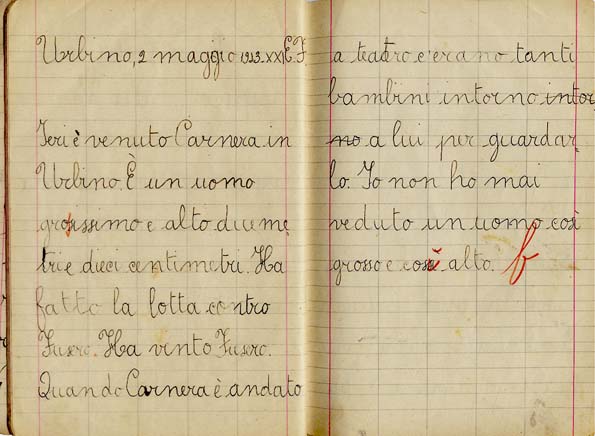 Urbino, 2 maggio 1943.XXI E.F.
Ieri è venuto Carnera in
Urbino. È un uomo
grossissimo e alto due me
tri e dieci centimetri. Ha
fatto la lotta contro
Fusero. Ha vinto Fusero.
Quando Carnera è andato
a teatro c'erano tanti
bambini intorno intor
no a lui per guardar
lo. Io non ho mai
veduto un uomo così
grosso e così alto.